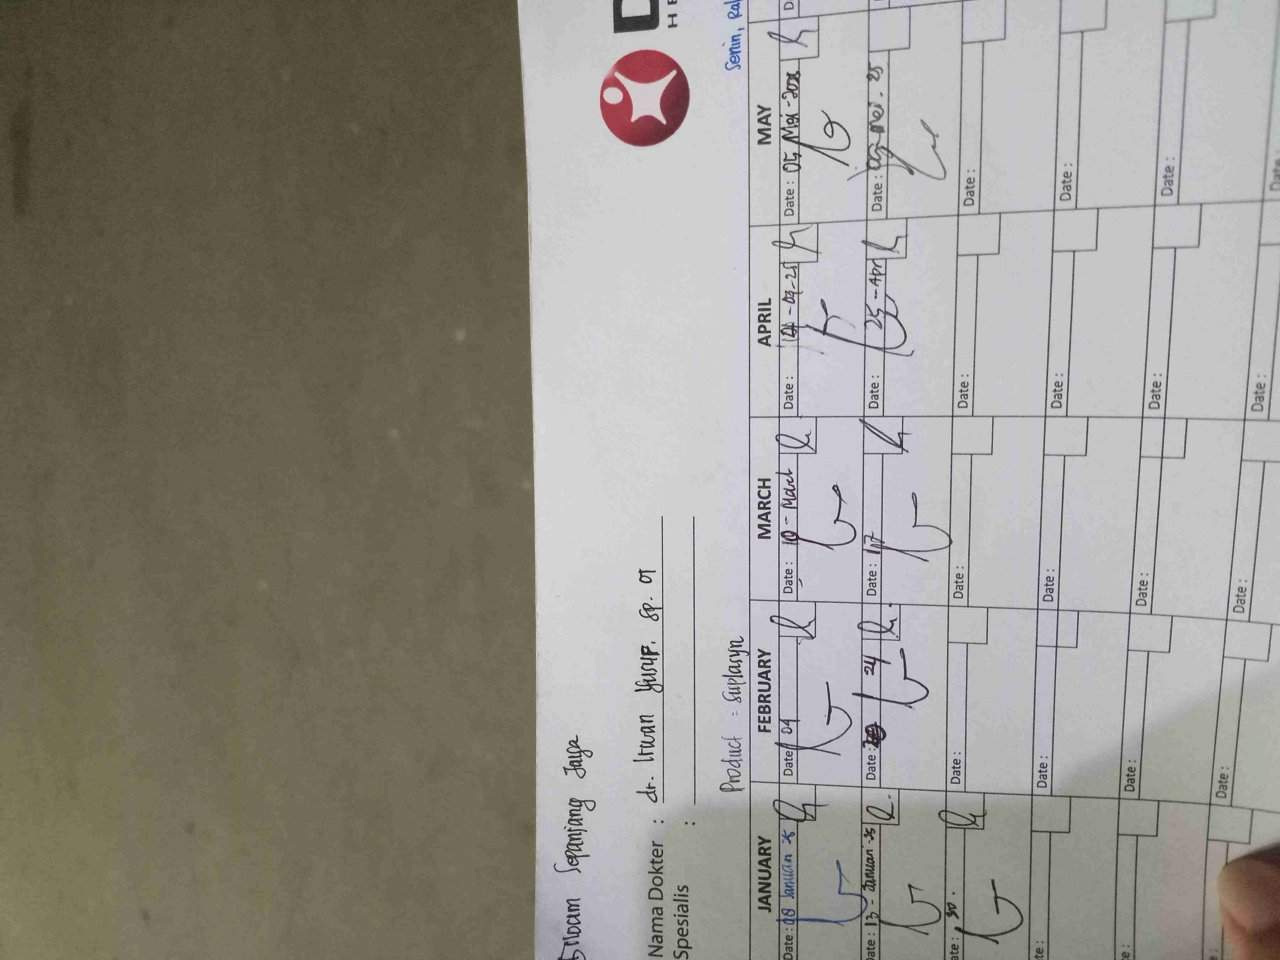 Siloam Sepanjang Jaya
D
HE
Nama Dokter : dr. Irwan Yusuf. Sp. OT
Spesialis :
Product = Suplasyn
Senin, Ra
JANUARY FEBRUARY MARCH APRIL MAY
Date : 08 Januari 25 Date 04 Date : 10 - Maret Date : Date : 05 Mei - 2025
Date : 13 - Januari - 25 Date : 24 Date : 17 Date : 25 - Apr Date : mei - 25
ate : 30 . Date : Date : Date : Date :
te : Date : Date : Date : Date :
e : Date : Date : Date : Date :
: Date : Date : Date : Date